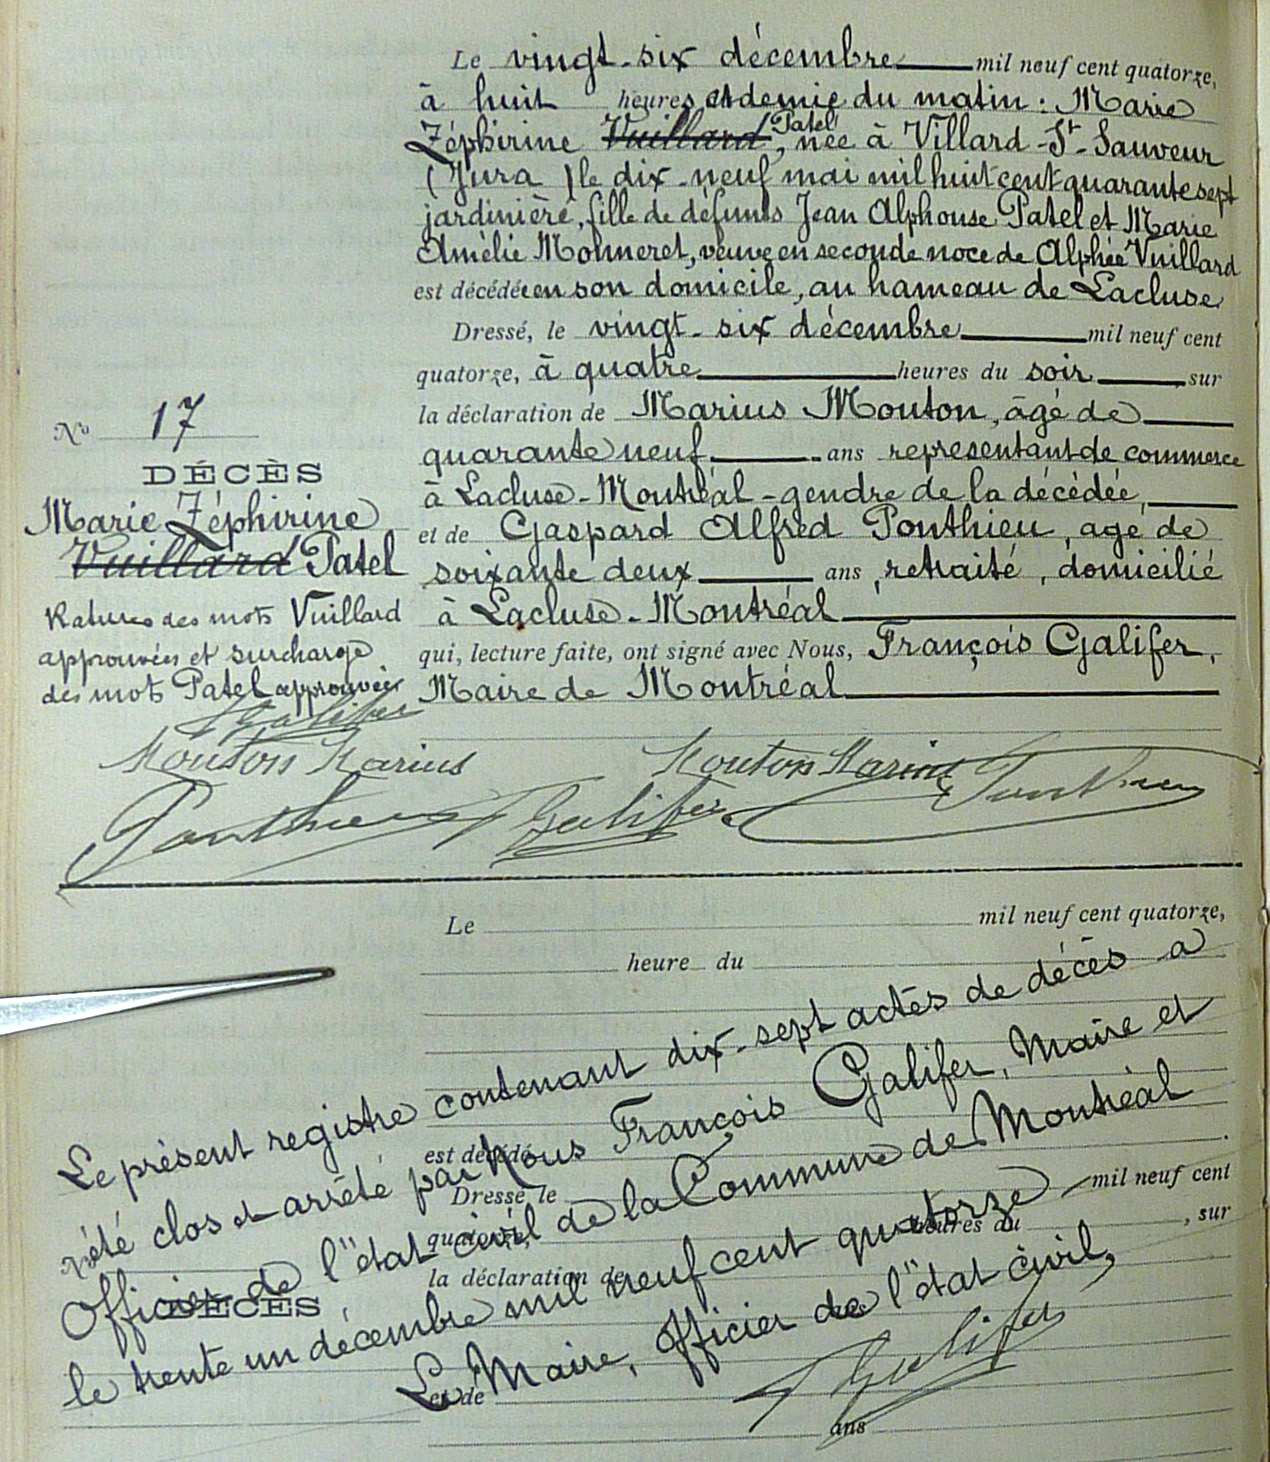 Le vingt-six décembre mil neuf cent quatorze,
à huit heures et demie du matin : Marie
Zéphirine Vuillard Patel, née à Villard-St-Sauveur
(Jura) le dix-neuf mai mil huit cent quarante sept
jardinière, fille de défunts Jean Alphonse Patel et Marie
Amélie Monneret, veuve en seconde noce de Alphée Vuillard
est décédée en son domicile, au hameau de Lacluse
Dressé, le vingt-six décembre mil neuf cent
quatorze, à quatre heures du soir, sur
la déclaration de Marius Mouton, âgé de
quarante neuf ans representant de commerce
à Lacluse-Montréal-gendre de la décédée,
et de Gaspard Alfred Ponthieu, agé de
soixante deux ans, retraité, domicilié
à Lacluse-Montréal
qui, lecture faite, ont signé avec Nous, François Galifer,
Maire de Montréal
No 17
DÉCÈS
Marie Zéphirine
Vuillard Patel
Ratures des mots Vuillard
approuvées et surcharge
des mots Patel approuvées
F Galifer
Mouton Marius Mouton Marius Ponthieu
Ponthieu F Galifer
Le mil neuf cent quatorze,
heure du
Le présent registre contenant dix-sept actes de décès a
été clos et arrêté par Nous François Galifer, Maire et
Officier de l'état civil de la Commune de Montréal
le trente un décembre mil neuf cent quatorze
Le Maire, Officier de l'état civil,
F Galifer
est décédé
Dressé, le mil neuf cent
quatorze, heures du , sur
la déclaration de
No
DÉCÈS
et de
ans